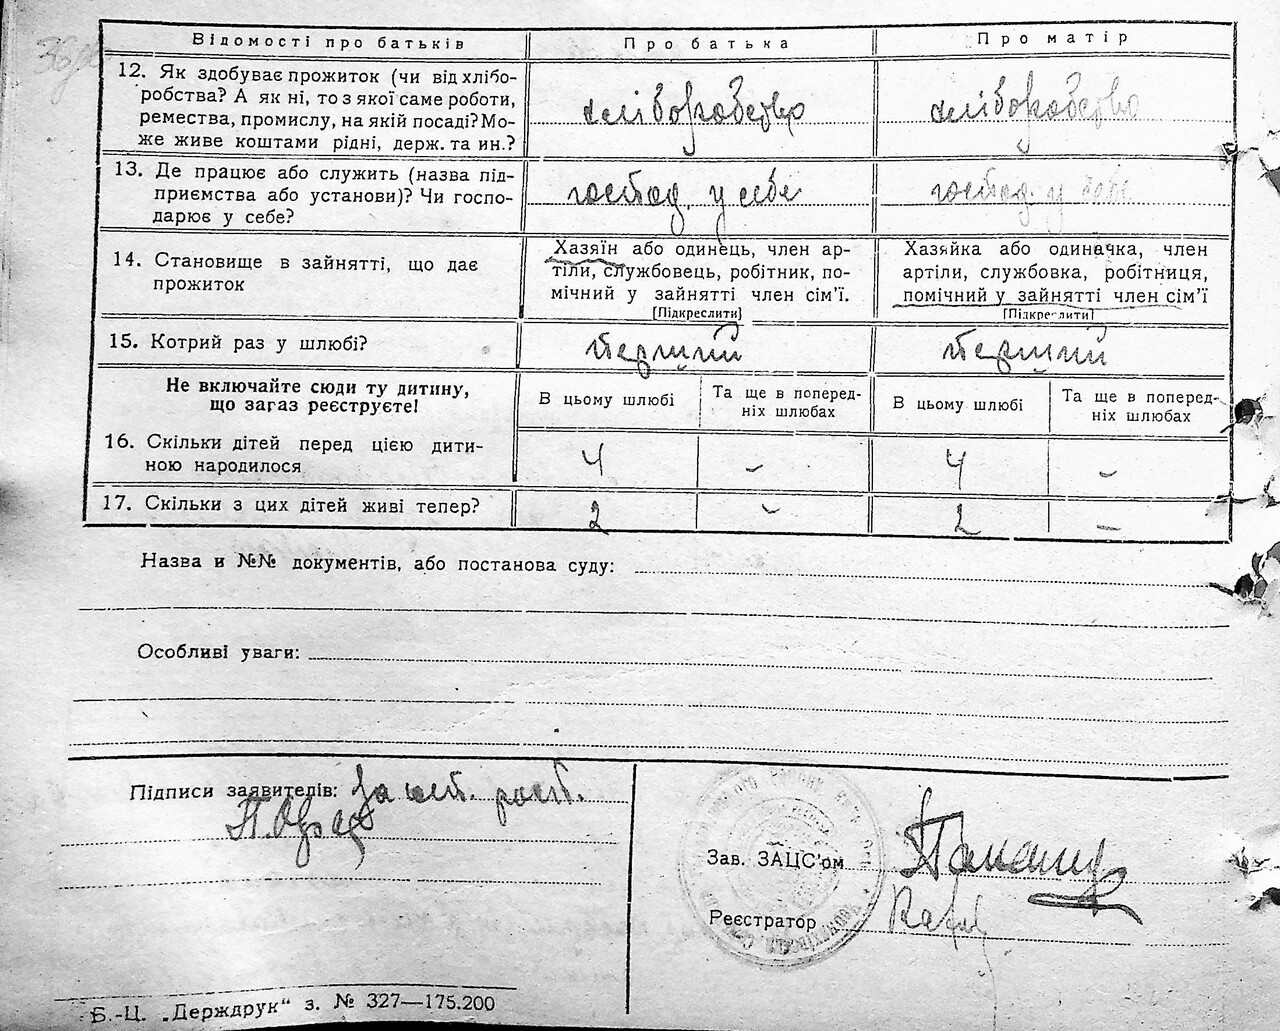 Відомості про батьків Про батька Про матір
12. Як здобуває прожиток (чи від хлібо-
робства? А як ні, то з якої саме роботи,
ремества, промислу, на якій посаді? Мо-
же живе коштами рідні, держ. та ин.?
хліборобство хліборобство
13. Де працює або служить (назва під-
приємства або установи)? Чи госпо-
дарює у себе?
господ. у себе господ. у себе
14. Становище в зайнятті, що дає
прожиток
Хазяїн або одинець, член ар-
тіли, службовець, робітник, по-
мічний у зайнятті член сім'ї.
[Підкреслити]
Хазяйка або одиначка, член
артіли, службовка, робітниця,
помічний у зайнятті член сім'ї
[Підкреслити]
15. Котрий раз у шлюбі? перший перший
Не включайте сюди ту дитину,
що загаз реєструєте!
В цьому шлюбі Та ще в поперед-
ніх шлюбах
В цьому шлюбі Та ще в поперед-
ніх шлюбах
16. Скільки дітей перед цією дити-
ною народилося
4 - 4 -
17. Скільки з цих дітей живі тепер? 2 - 2 -
Назва и №№ документів, або постанова суду:
Особливі уваги:
Підписи заявителів:
Зав. ЗАЦС'ом
Реєстратор
Б.-Ц. „Держдрук“ з. № 327—175.200